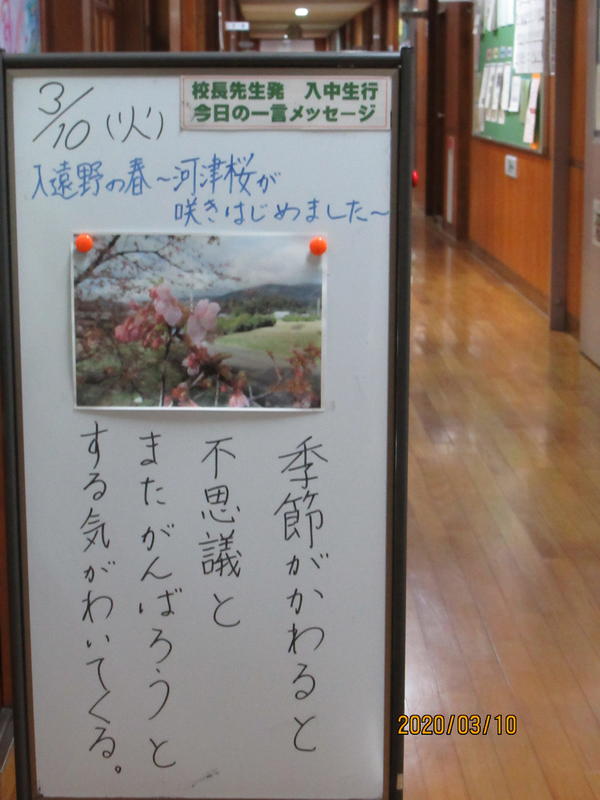 3/10(火)
校長先生発　入中生行
今日の一言メッセージ
入遠野の春～河津桜が
咲きはじめました～
季節がかわると
不思議と
またがんばろうと
する気がわいてくる。
2020/03/10